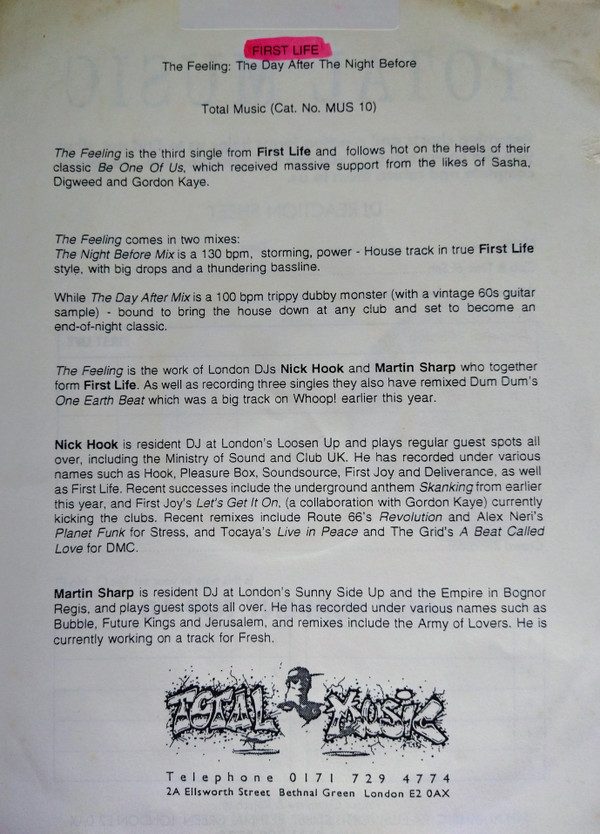 FIRST LIFE
The Feeling: The Day After The Night Before
Total Music (Cat. No. MUS 10)
The Feeling is the third single from First Life and follows hot on the heels of their
classic Be One Of Us, which received massive support from the likes of Sasha,
Digweed and Gordon Kaye.
The Feeling comes in two mixes:
The Night Before Mix is a 130 bpm, storming, power - House track in true First Life
style, with big drops and a thundering bassline.
While The Day After Mix is a 100 bpm trippy dubby monster (with a vintage 60s guitar
sample) - bound to bring the house down at any club and set to become an
end-of-night classic.
The Feeling is the work of London DJs Nick Hook and Martin Sharp who together
form First Life. As well as recording three singles they also have remixed Dum Dum's
One Earth Beat which was a big track on Whoop! earlier this year.
Nick Hook is resident DJ at London's Loosen Up and plays regular guest spots all
over, including the Ministry of Sound and Club UK. He has recorded under various
names such as Hook, Pleasure Box, Soundsource, First Joy and Deliverance, as well
as First Life. Recent successes include the underground anthem Skanking from earlier
this year, and First Joy's Let's Get It On, (a collaboration with Gordon Kaye) currently
kicking the clubs. Recent remixes include Route 66's Revolution and Alex Neri's
Planet Funk for Stress, and Tocaya's Live in Peace and The Grid's A Beat Called
Love for DMC.
Martin Sharp is resident DJ at London's Sunny Side Up and the Empire in Bognor
Regis, and plays guest spots all over. He has recorded under various names such as
Bubble, Future Kings and Jerusalem, and remixes include the Army of Lovers. He is
currently working on a track for Fresh.
TOTAL MUSIC
Telephone 0171 729 4774
2A Ellsworth Street Bethnal Green London E2 0AX